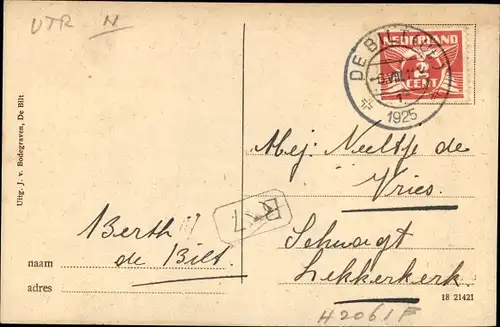 UTR N
NEDERLAND
CENT
DE BILT
1925
Uitg. J. v. Bodegraven, De Bilt
Mej: Neeltje de
Vries.
Schuagt
Lekkerkerk.
BK 7
Berth
de Bilt.
naam
adres
18 21421
H2061F